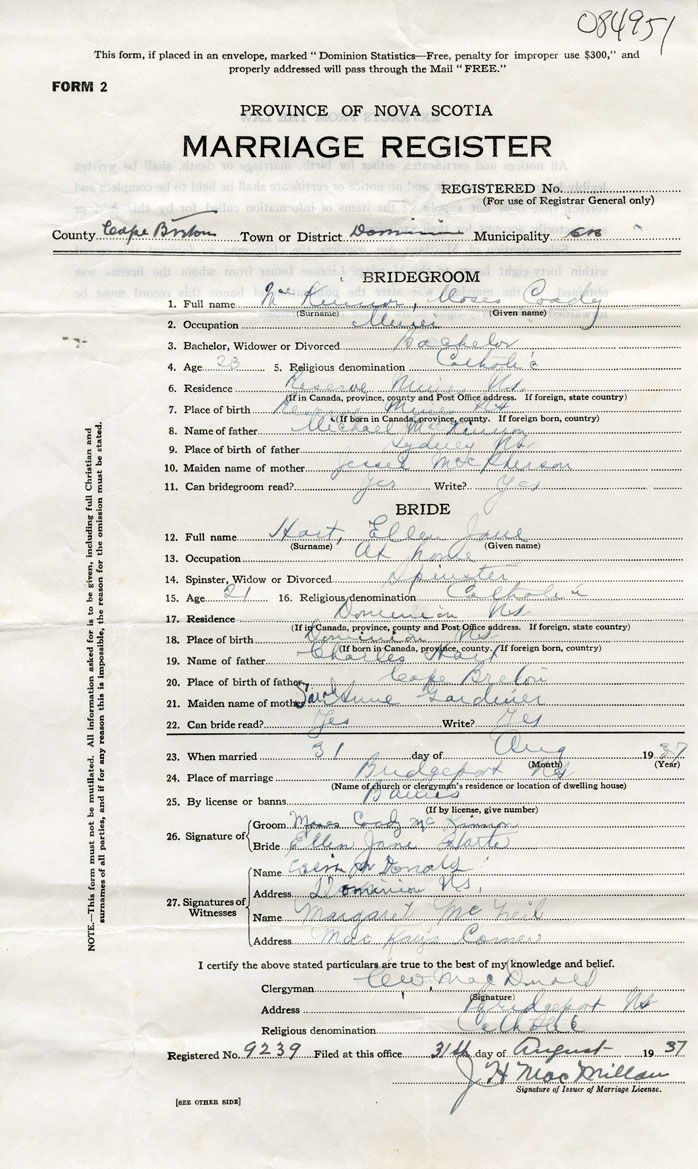 084951
This form, if placed in an envelope, marked "Dominion Statistics—Free, penalty for improper use $300," and
properly addressed will pass through the Mail "FREE."
FORM 2
PROVINCE OF NOVA SCOTIA
MARRIAGE REGISTER
REGISTERED No.
(For use of Registrar General only)
County Cape Breton Town or District Dominion Municipality
BRIDEGROOM
1. Full name McKinnon, Moses Coady
(Surname) (Given name)
2. Occupation Miner
3. Bachelor, Widower or Divorced Bachelor
4. Age 23 5. Religious denomination Catholic
6. Residence Reserve Mines NS
(If in Canada, province, county and Post Office address. If foreign, state country)
7. Place of birth Reserve Mines NS
(If born in Canada, province, county. If foreign born, country)
8. Name of father Michael McKinnon
9. Place of birth of father Sydney NS
10. Maiden name of mother Jessie MacPherson
11. Can bridegroom read? Yes Write? Yes
BRIDE
12. Full name Hart, Ellen Jane
(Surname) (Given name)
13. Occupation At home
14. Spinster, Widow or Divorced Spinster
15. Age 21 16. Religious denomination Catholic
17. Residence Dominion NS
(If in Canada, province, county and Post Office address. If foreign, state country)
18. Place of birth Dominion NS
(If born in Canada, province, county. If foreign born, country)
19. Name of father Charles Hart
20. Place of birth of father Cape Breton
21. Maiden name of mother Sarah Anne Gardiner
22. Can bride read? Yes Write? Yes
23. When married 31 day of Aug 1937
(Month) (Year)
24. Place of marriage Bridgeport NS
(Name of church or clergyman's residence or location of dwelling house)
25. By license or banns Banns
(If by license, give number)
26. Signature of
Groom Moses Coady McKinnon
Bride Ellen Jane Harte
27. Signatures of Witnesses
Name McDonald
Address Dominion NS,
Name Margaret McNeil
Address MacKay's Corner
I certify the above stated particulars are true to the best of my knowledge and belief.
Clergyman MacDonald
(Signature)
Address Bridgeport NS
Religious denomination Catholic
Registered No. 9239 Filed at this office 31st day of August 1937
J H MacMillan
Signature of Issuer of Marriage License.
[SEE OTHER SIDE]
NOTE.—This form must not be mutilated. All information asked for is to be given, including full Christian and
surnames of all parties, and if for any reason this is impossible, the reason for the omission must be stated.